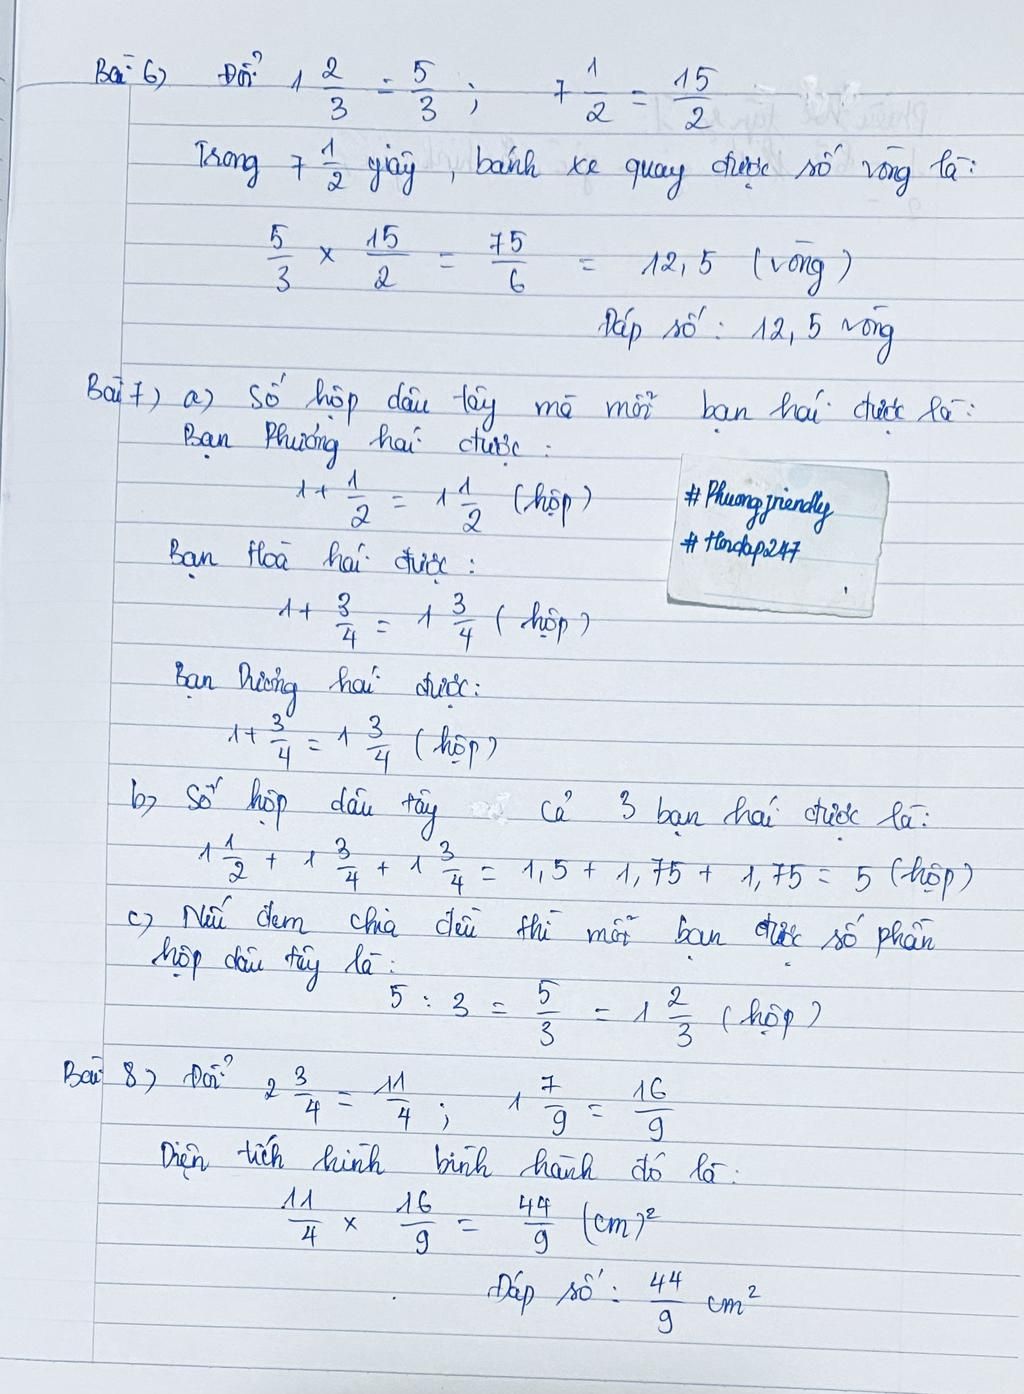 Bài 6) Đổi 1 2/3 = 5/3 ; 7 1/2 = 15/2
Trong 7 1/2 giây, bánh xe quay được số vòng là:
5/3 × 15/2 = 75/6 = 12,5 (vòng)
Đáp số: 12,5 vòng
Bài 7) a) Số hộp dâu tây mà mỗi bạn hái được là:
Bạn Phương hái được:
1 + 1/2 = 1 1/2 (hộp)
#Phuongfriendly
#Hoidap247
Bạn Hoà hái được:
1 + 3/4 = 1 3/4 (hộp)
Bạn Dương hái được:
1 + 3/4 = 1 3/4 (hộp)
b) Số hộp dâu tây cả 3 bạn hái được là:
1 1/2 + 1 3/4 + 1 3/4 = 1,5 + 1,75 + 1,75 = 5 (hộp)
c) Nếu đem chia đều thì mỗi bạn được số phần
hộp dâu tây là:
5 : 3 = 5/3 = 1 2/3 (hộp)
Bài 8) Đổi 2 3/4 = 11/4 ; 1 7/9 = 16/9
Diện tích hình bình hành đó là:
11/4 × 16/9 = 44/9 (cm)²
Đáp số: 44/9 cm²